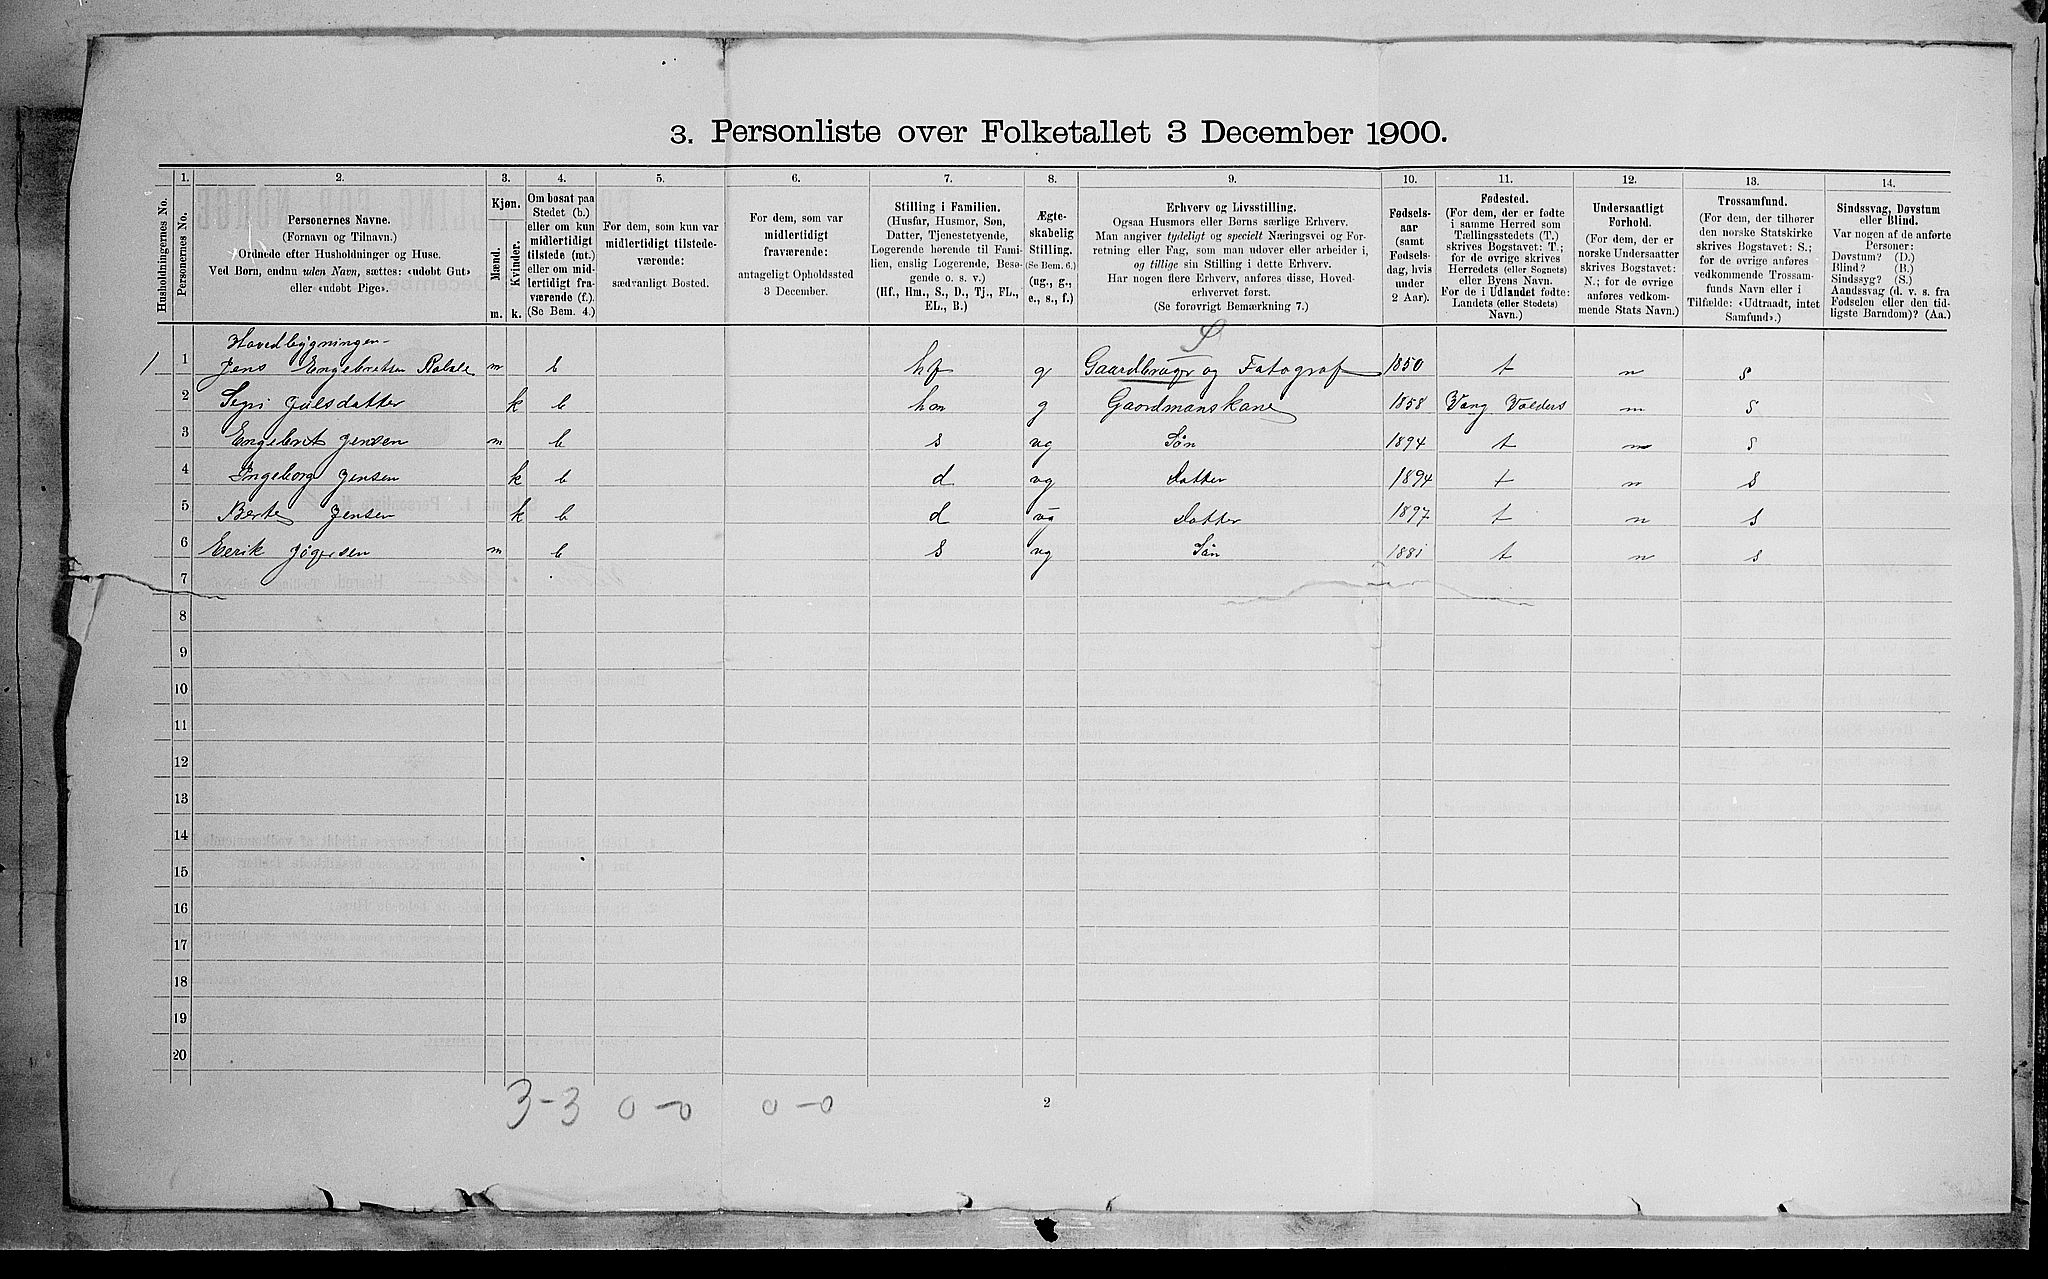 3. Personliste over Folketallet 3 December 1900.
Husholdningernes No.
1.
Personernes No.
2.
Personernes Navne.
(Fornavn og Tilnavn.)
Ordnede efter Husholdninger og Huse.
Ved Børn, endnu uden Navn, sættes: «udøbt Gut»
eller «udøbt Pige».
3.
Kjøn.
Mænd.
Kvinder.
m.
k.
4.
Om bosat paa
Stedet (b.)
eller om kun
midlertidigt
tilstede (mt.)
eller om mid-
lertidigt fra-
værende (f.).
(Se Bem. 4.)
5.
For dem, som kun var
midlertidigt tilstede-
værende:
sædvanligt Bosted.
6.
For dem, som var
midlertidigt
fraværende:
antageligt Opholdssted
3 December.
7.
Stilling i Familien.
(Husfar, Husmor, Søn,
Datter, Tjenestetyende,
Logerende hørende til Fami-
lien, enslig Logerende, Besø-
gende o. s. v.)
(Hf., Hm., S., D., Tj., FL.,
EL., B.)
8.
Ægte-
skabelig
Stilling.
(Se Bem. 6.)
(ug., g.,
e., s., f.)
9.
Erhverv og Livsstilling.
Ogsaa Husmors eller Børns særlige Erhverv.
Man angiver tydeligt og specielt Næringsvei og For-
retning eller Fag, som man udøver eller arbeider i,
og tillige sin Stilling i dette Erhverv.
Har nogen flere Erhverv, anføres disse, Hoved-
erhvervet først.
(Se forøvrigt Bemærkning 7.)
10.
Fødsels-
aar
(samt
Fødsels-
dag, hvis
under
2 Aar).
11.
Fødested.
(For dem, der er fødte
i samme Herred som
Tællingsstedets (T.)
skrives Bogstavet: T.;
for de øvrige skrives
Herredets (eller Sognets)
eller Byens Navn.
For de i Udlandet fødte:
Landets (eller Stedets)
Navn.)
12.
Undersaatligt
Forhold.
(For dem, der er
norske Undersaatter
skrives Bogstavet:
N.; for de øvrige
anføres vedkom-
mende Stats Navn.)
13.
Trossamfund.
(For dem, der tilhører
den norske Statskirke
skrives Bogstavet: S.;
for de øvrige anføres
vedkommende Trossam-
funds Navn eller i
Tilfælde: «Udtraadt, intet
Samfund».)
14.
Sindssvag, Døvstum
eller Blind.
Var nogen af de anførte
Personer:
Døvstum? (D.)
Blind? (B.)
Sindssyg? (S.)
Aandssvag (d. v. s. fra
Fødselen eller den tid-
ligste Barndom)? (Aa.)
Hovedbygningen
S
1 1 Jens Engebretsen m b hf g Gaardbruger og Fotograf 1850 t n s
2 Sigri Julsdatter k b hm g Gaardmanskane 1858 Vang Valders n s
3 Engebrit Jensen m b s ug Søn 1894 t n s
4 Ingeborg Jensen k b d ug Datter 1894 t n s
5 Berte Jensen k b d ug Datter 1897 t n s
6 Eerik m b s ug Søn 1881 t n s
7
8
9
10
11
12
13
14
15
16
17
18
19
20
3-3 0-0 0-0
2